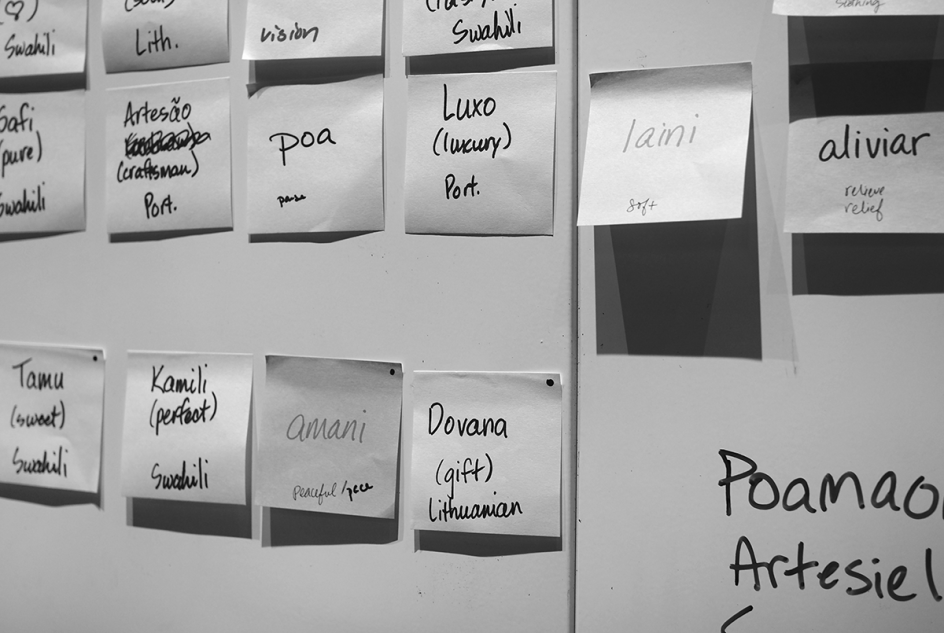 Swahili
Lith.
vision
Swahili
Safi
(pure)
Swahili
Artesão
(craftsman)
Port.
poa
Luxo
(luxury)
Port.
laini
soft
aliviar
relieve
relief
Tamu
(sweet)
Swahili
Kamili
(perfect)
Swahili
amani
peaceful /
Dovana
(gift)
Lithuanian
Poamao
Artesiel